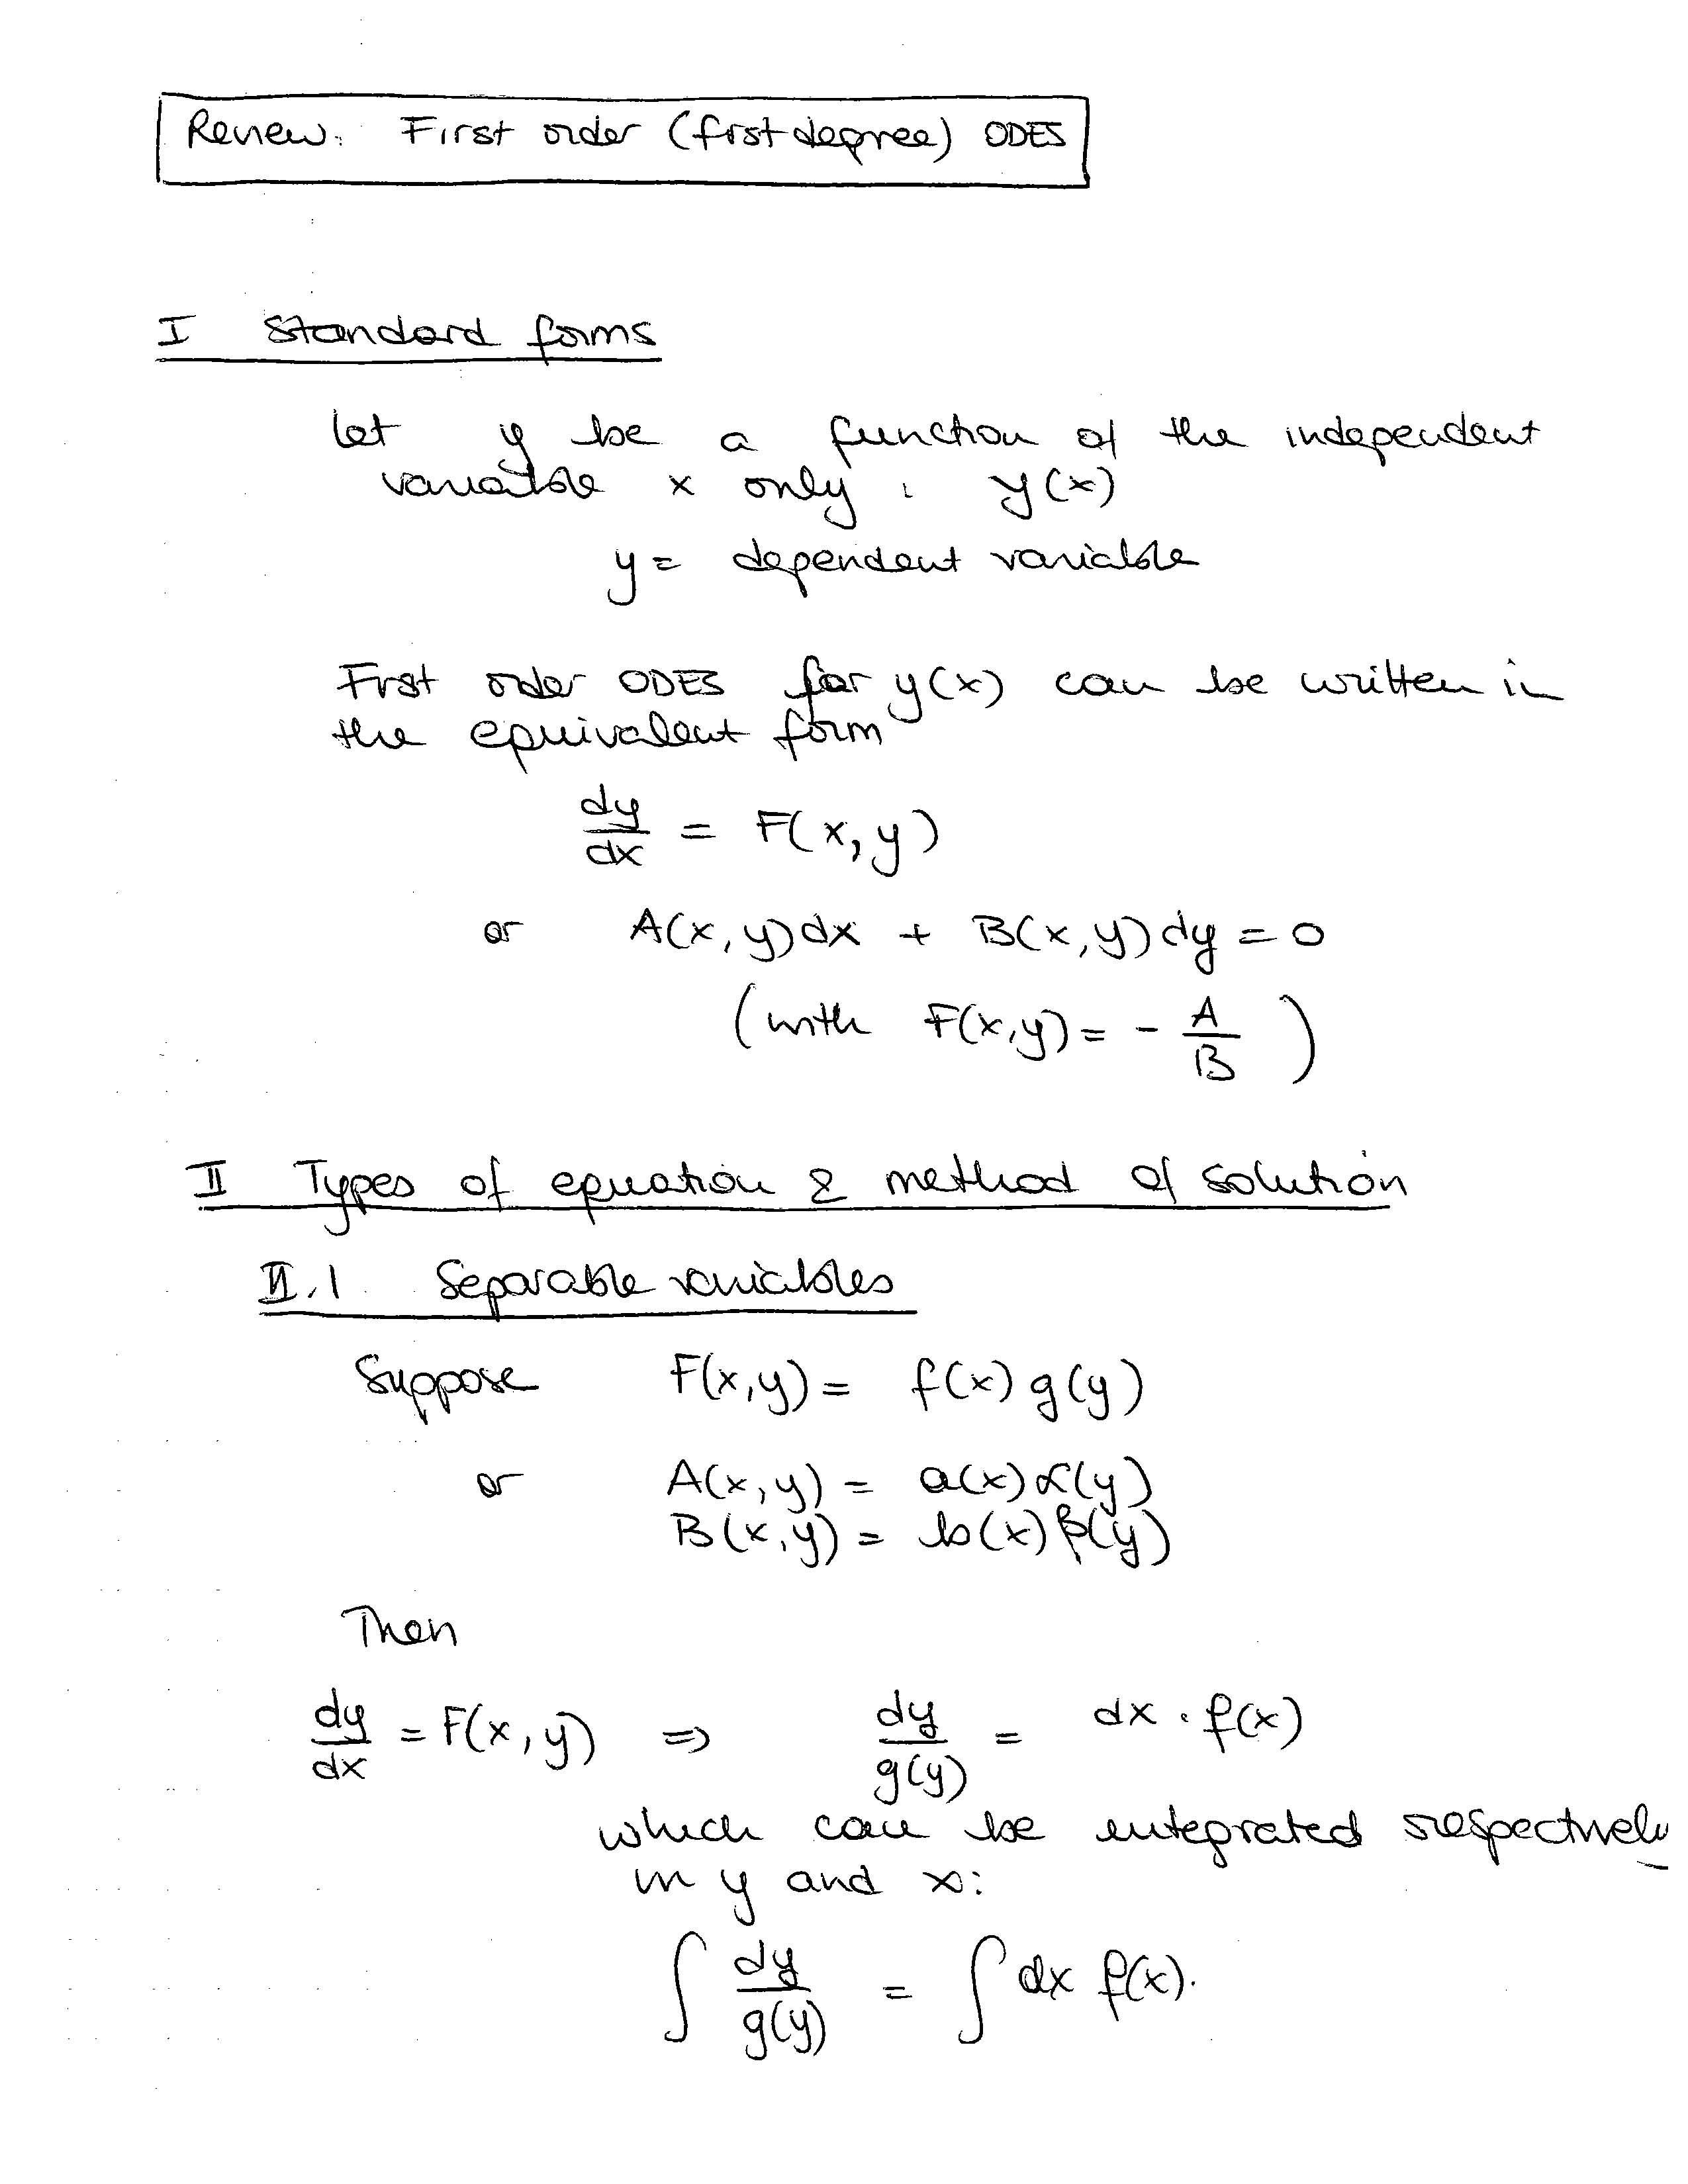 Review: First order (first degree) ODES
I Standard forms
Let y be a function of the independent
variable x only : y(x)
y = dependent variable
First order ODES for y(x) can be written in
the equivalent form
dy/dx = F(x,y)
or A(x,y)dx + B(x,y)dy = 0
(with F(x,y) = - A/B )
II Types of equation & method of solution
II.1 Separable variables
Suppose F(x,y) = f(x) g(y)
or A(x,y) = a(x)α(y)
B(x,y) = b(x)β(y)
Then
dy/dx = F(x,y) ⇒ dy/g(y) = dx · f(x)
which can be integrated respectively
in y and x:
∫ dy/g(y) = ∫ dx f(x).